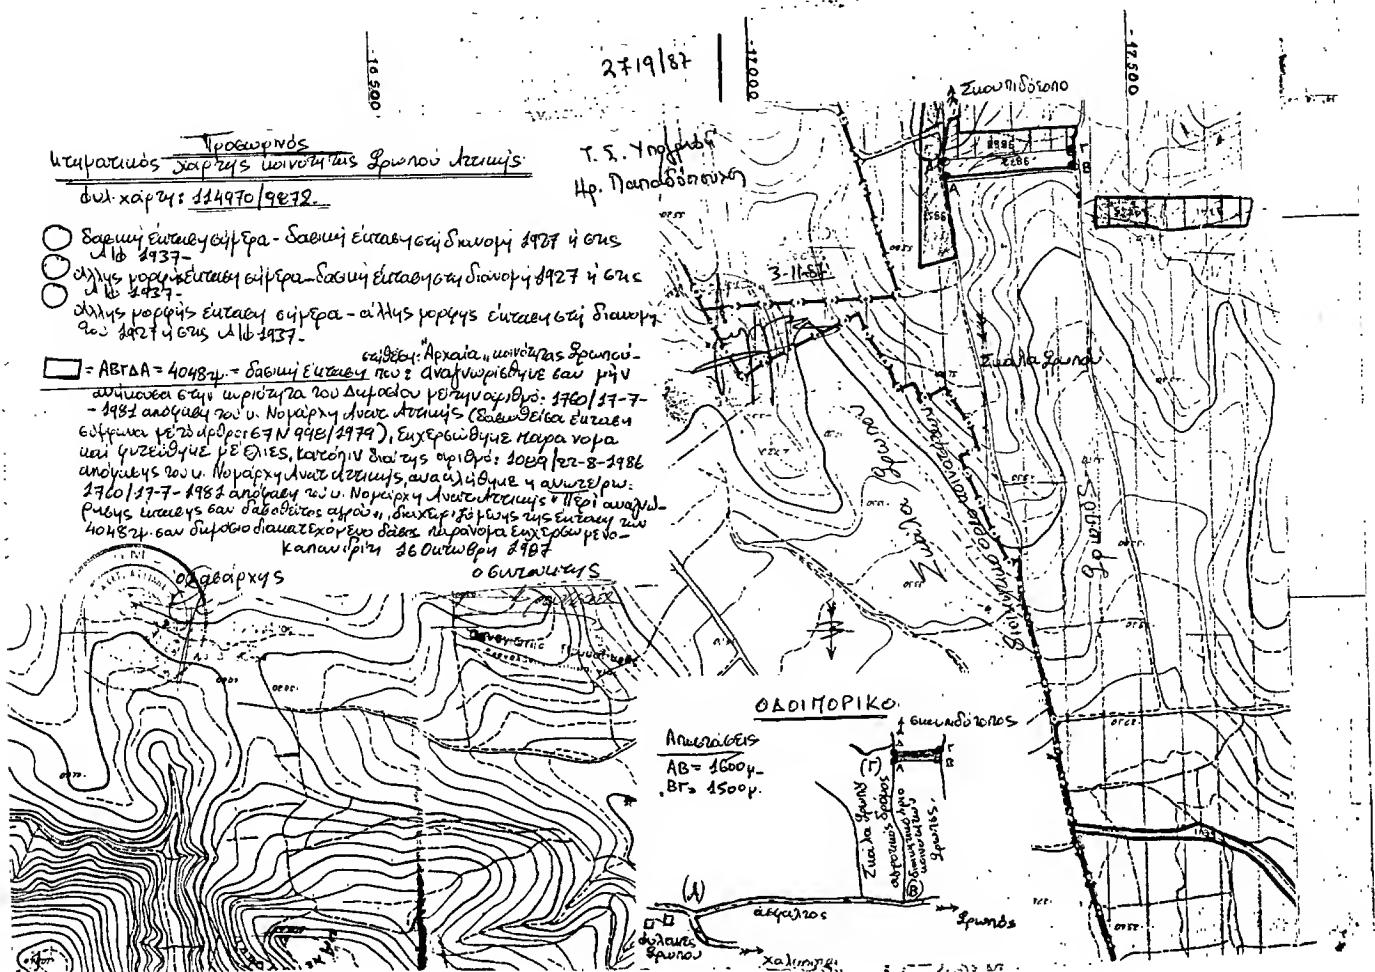 2719/87
-16.500
-17.000
-17.500
Προσωρινός
κτηματικός χάρτης κοινότητας Ωρωπού Αττικής
φυλ. χάρτη: 114970/9872.
Τ. Σ. Υπογραφή
Ηρ. Παπαδόπουλος
δασική έκταση σήμερα - δασική έκταση στη διανομή 1927 ή στις
Α/Φ 1937-
άλλης μορφής έκταση σήμερα - δασική έκταση στη διανομή 1927 ή στις
Α/Φ 1937-
άλλης μορφής έκταση σήμερα - άλλης μορφής έκταση στη διανομή
του 1927 ή στις Α/Φ 1937-
στη θέση: "Αρχαία" κοινότητας Ωρωπού-
= ΑΒΓΔΑ = 4048τμ. = δασική έκταση που: αναγνωρίσθηκε σαν μην
ανήκουσα στην κυριότητα του Δημοσίου με την αριθμό: 1760/17-7-
-1981 απόφαση του κ. Νομάρχη Ανατ. Αττικής (δασωθείσα έκταση
σύμφωνα με το άρθρο: 67 Ν 998/1979), εκχερσώθηκε παράνομα
και φυτεύθηκε με ελιές, κατόπιν δια της αριθμό: 1089/22-8-1986
απόφασης του κ. Νομάρχη Ανατ. Αττικής, ανακλήθηκε η ανωτέρω:
1760/17-7-1981 απόφαση του κ. Νομάρχη Ανατ. Αττικής "Περί αναγνω-
ρισης έκτασης σαν δασωθέντος αγρού", διαχειριζόμενης της έκτασης των
4048τμ. σαν δημόσιο διακατεχόμενο δάσος παράνομα εκχερσωμένο-
Καπανδρίτι 16 Οκτώβρη 1987
ο Δασάρχης
ο συντάκτης
Σκουπιδότοπο
3-11-87
Σκάλα Ωρωπού
Σκάλα Ωρωπού
Διοικητικό όριο κοινοτήτων
Ωρωπός
ΟΔΟΙΠΟΡΙΚΟ
Αποστάσεις
ΑΒ = 1600μ.
ΒΓ = 1500μ.
σκουπιδότοπος
(Γ)
Α
Β
Σκάλα Ωρωπού
αγροτικός δρόμος
διοικητικό όριο
κοινοτήτων
Ωρωπός
(Β)
(Α)
άσφαλτος
Ωρωπός
φυλακές
Ωρωπού